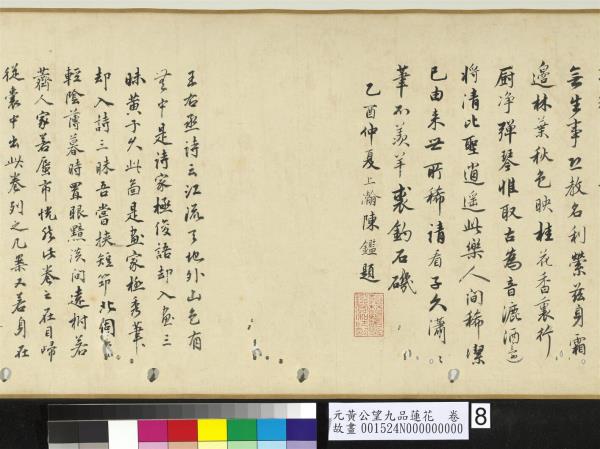 無生事只教名利縈茲身霜
邊林葉秋色映桂花香裏行
厨净彈琴惟取古為音漉酒還
將清比聖逍遥此樂人间稀潔
已由来世所稀請看子久瀟〻
筆不羡羊裘釣石磯
乙酉仲夏上瀚陳鑑題
王右丞詩云江流天地外山色有
無中是詩家極俊語却入畫三
昧黄子久此啚是畫家極秀筆
却入詩三昧吾嘗挾短節北個
輕陰薄暮時置眼黯淡间遠樹若
薺人家若蜃市恍然此卷之在目歸
從囊中出此卷列之几案又若身在
元黃公望九品蓮花 卷
故畫 001524N000000000
8